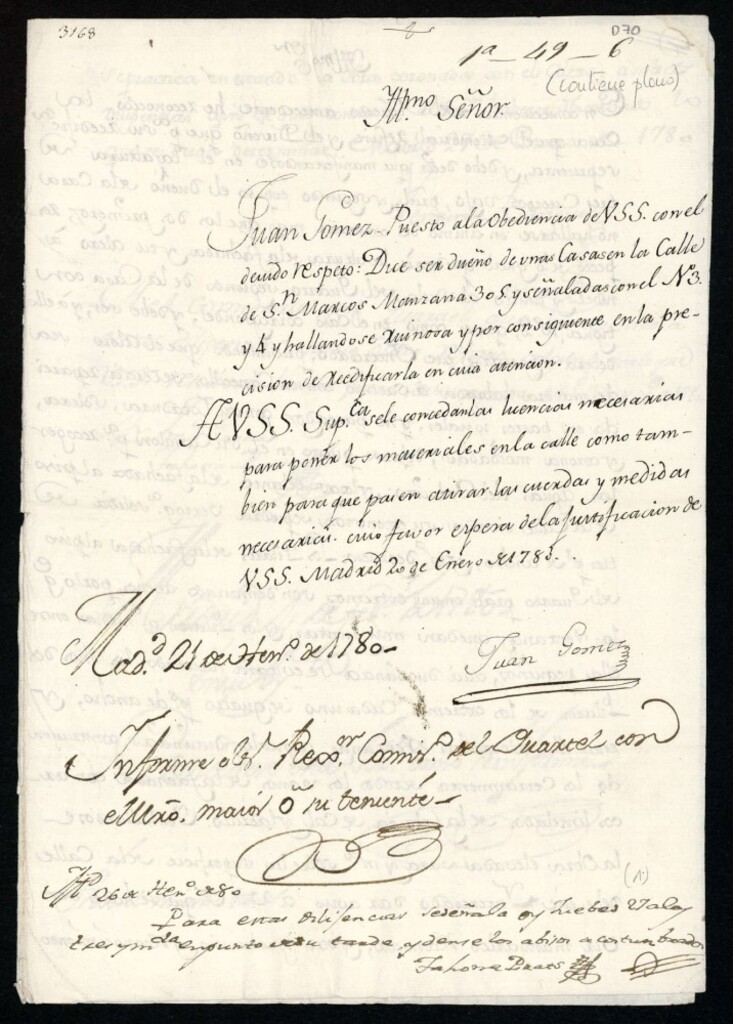 3168
D70
1ª - 49 - 6
(contiene plano)
Illmo. Señor.
Juan Gomez Puesto ala Obediencia de VSS. con el
devido respeto: Dice ser dueño de unas Casas en la Calle
de Sn. Marcos Manzana 305 y señaladas con el No. 3.
y 4 y hallandose Ruinosa y por consiguiente en la pre-
cision de Reedificarla en cuia atencion.
A VSS. Supca. sele concedan las licencias necesarias
para poner los materiales en la calle como tam-
bien para que pasen atirar las cuerdas y medidas
necesarias. cuio favor espera dela Justificacion de
VSS. Madrid 20 de Enero de 1780.
Juan Gomez
Madd. 21 de Heno. de 1780-
Informe el Sr. Rexor. Comiso. del Quartel con
el Mro. maior ó su teniente-
Md. 26 de Heno. de 80
(1)
Para estas Dilijencias se señala oy Juebes 27 a las
tres y mda. en punto de su tarde, y dense los abisos acostumbrados